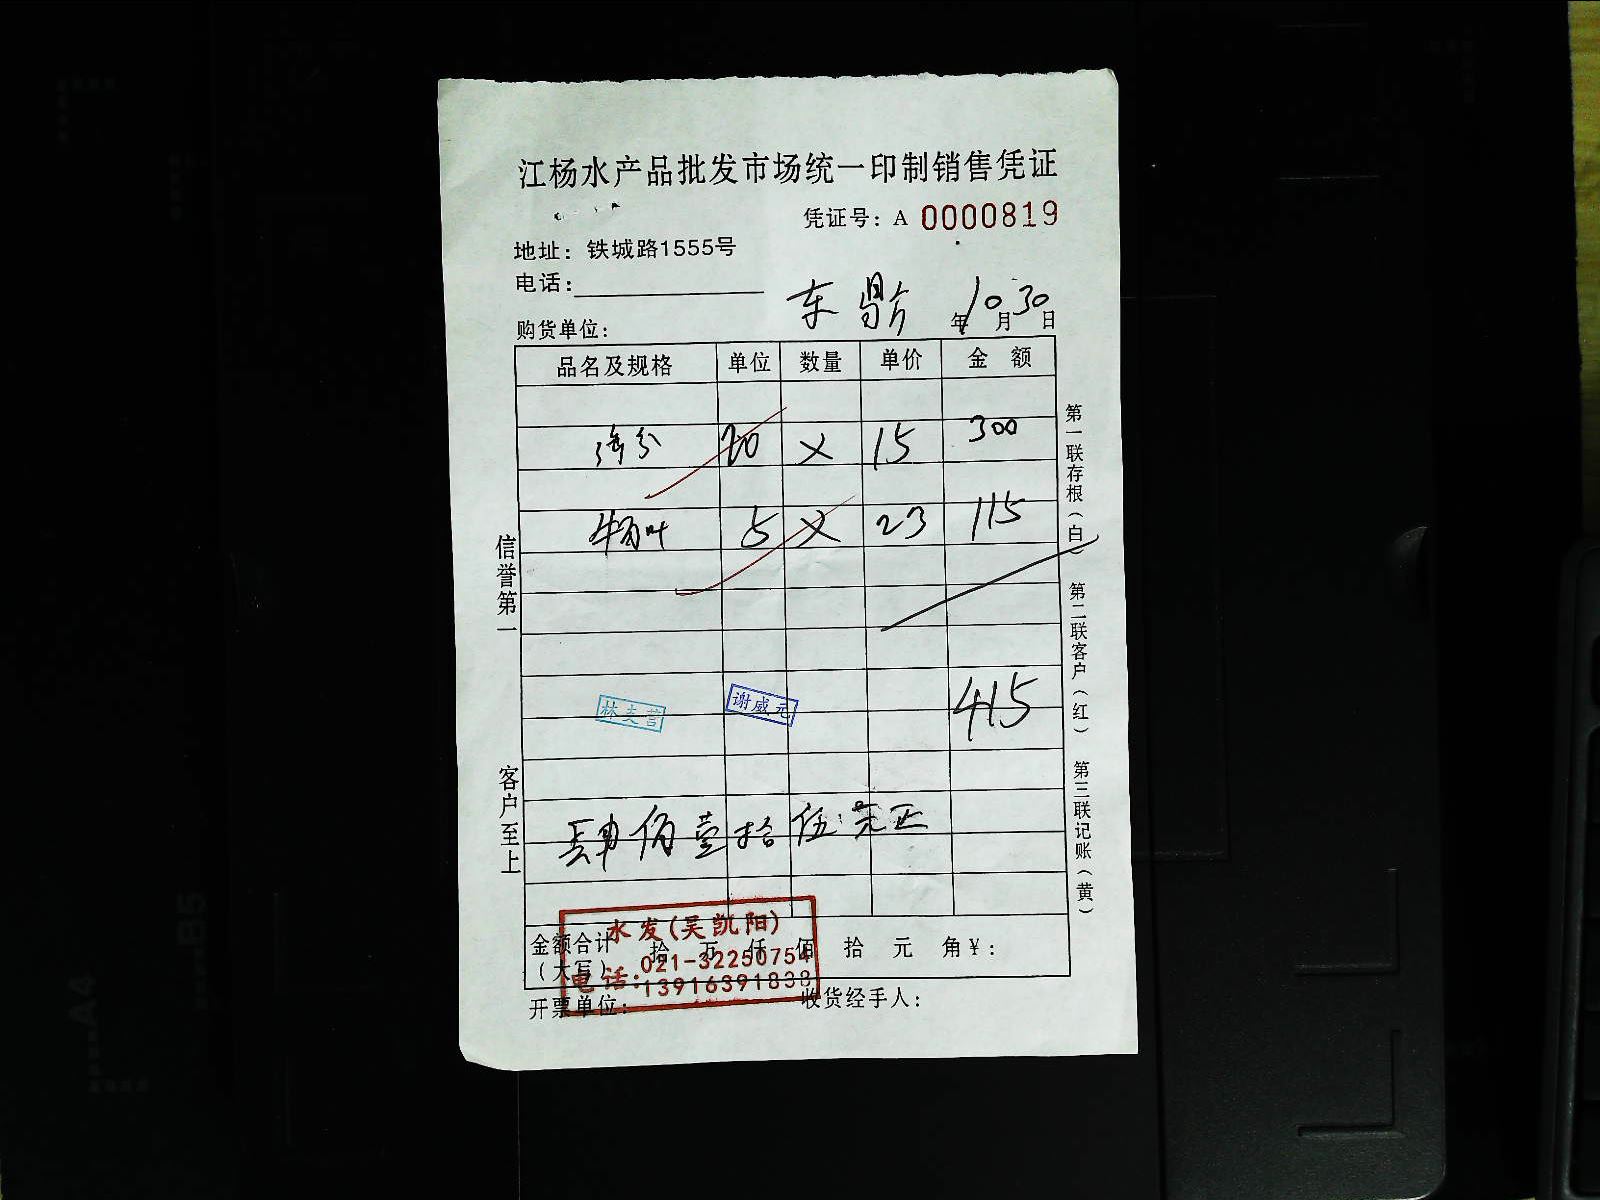 江杨水产品批发市场统一印制销售凭证
凭证号：A 0000819
地址：铁城路1555号
电话：
东鼎 年10月30日
购货单位：
品名及规格 单位 数量 单价 金额
20 × 15 300
牛百叶 5 × 23 115
415
谢威元
肆佰壹拾伍元正
金额合计（大写） 拾 万 仟 佰 拾 元 角¥：
水发(吴凯阳)
电话：021-32250754
13916391838
开票单位： 收货经手人：
信誉第一
客户至上
第一联存根（白） 第二联客户（红） 第三联记账（黄）